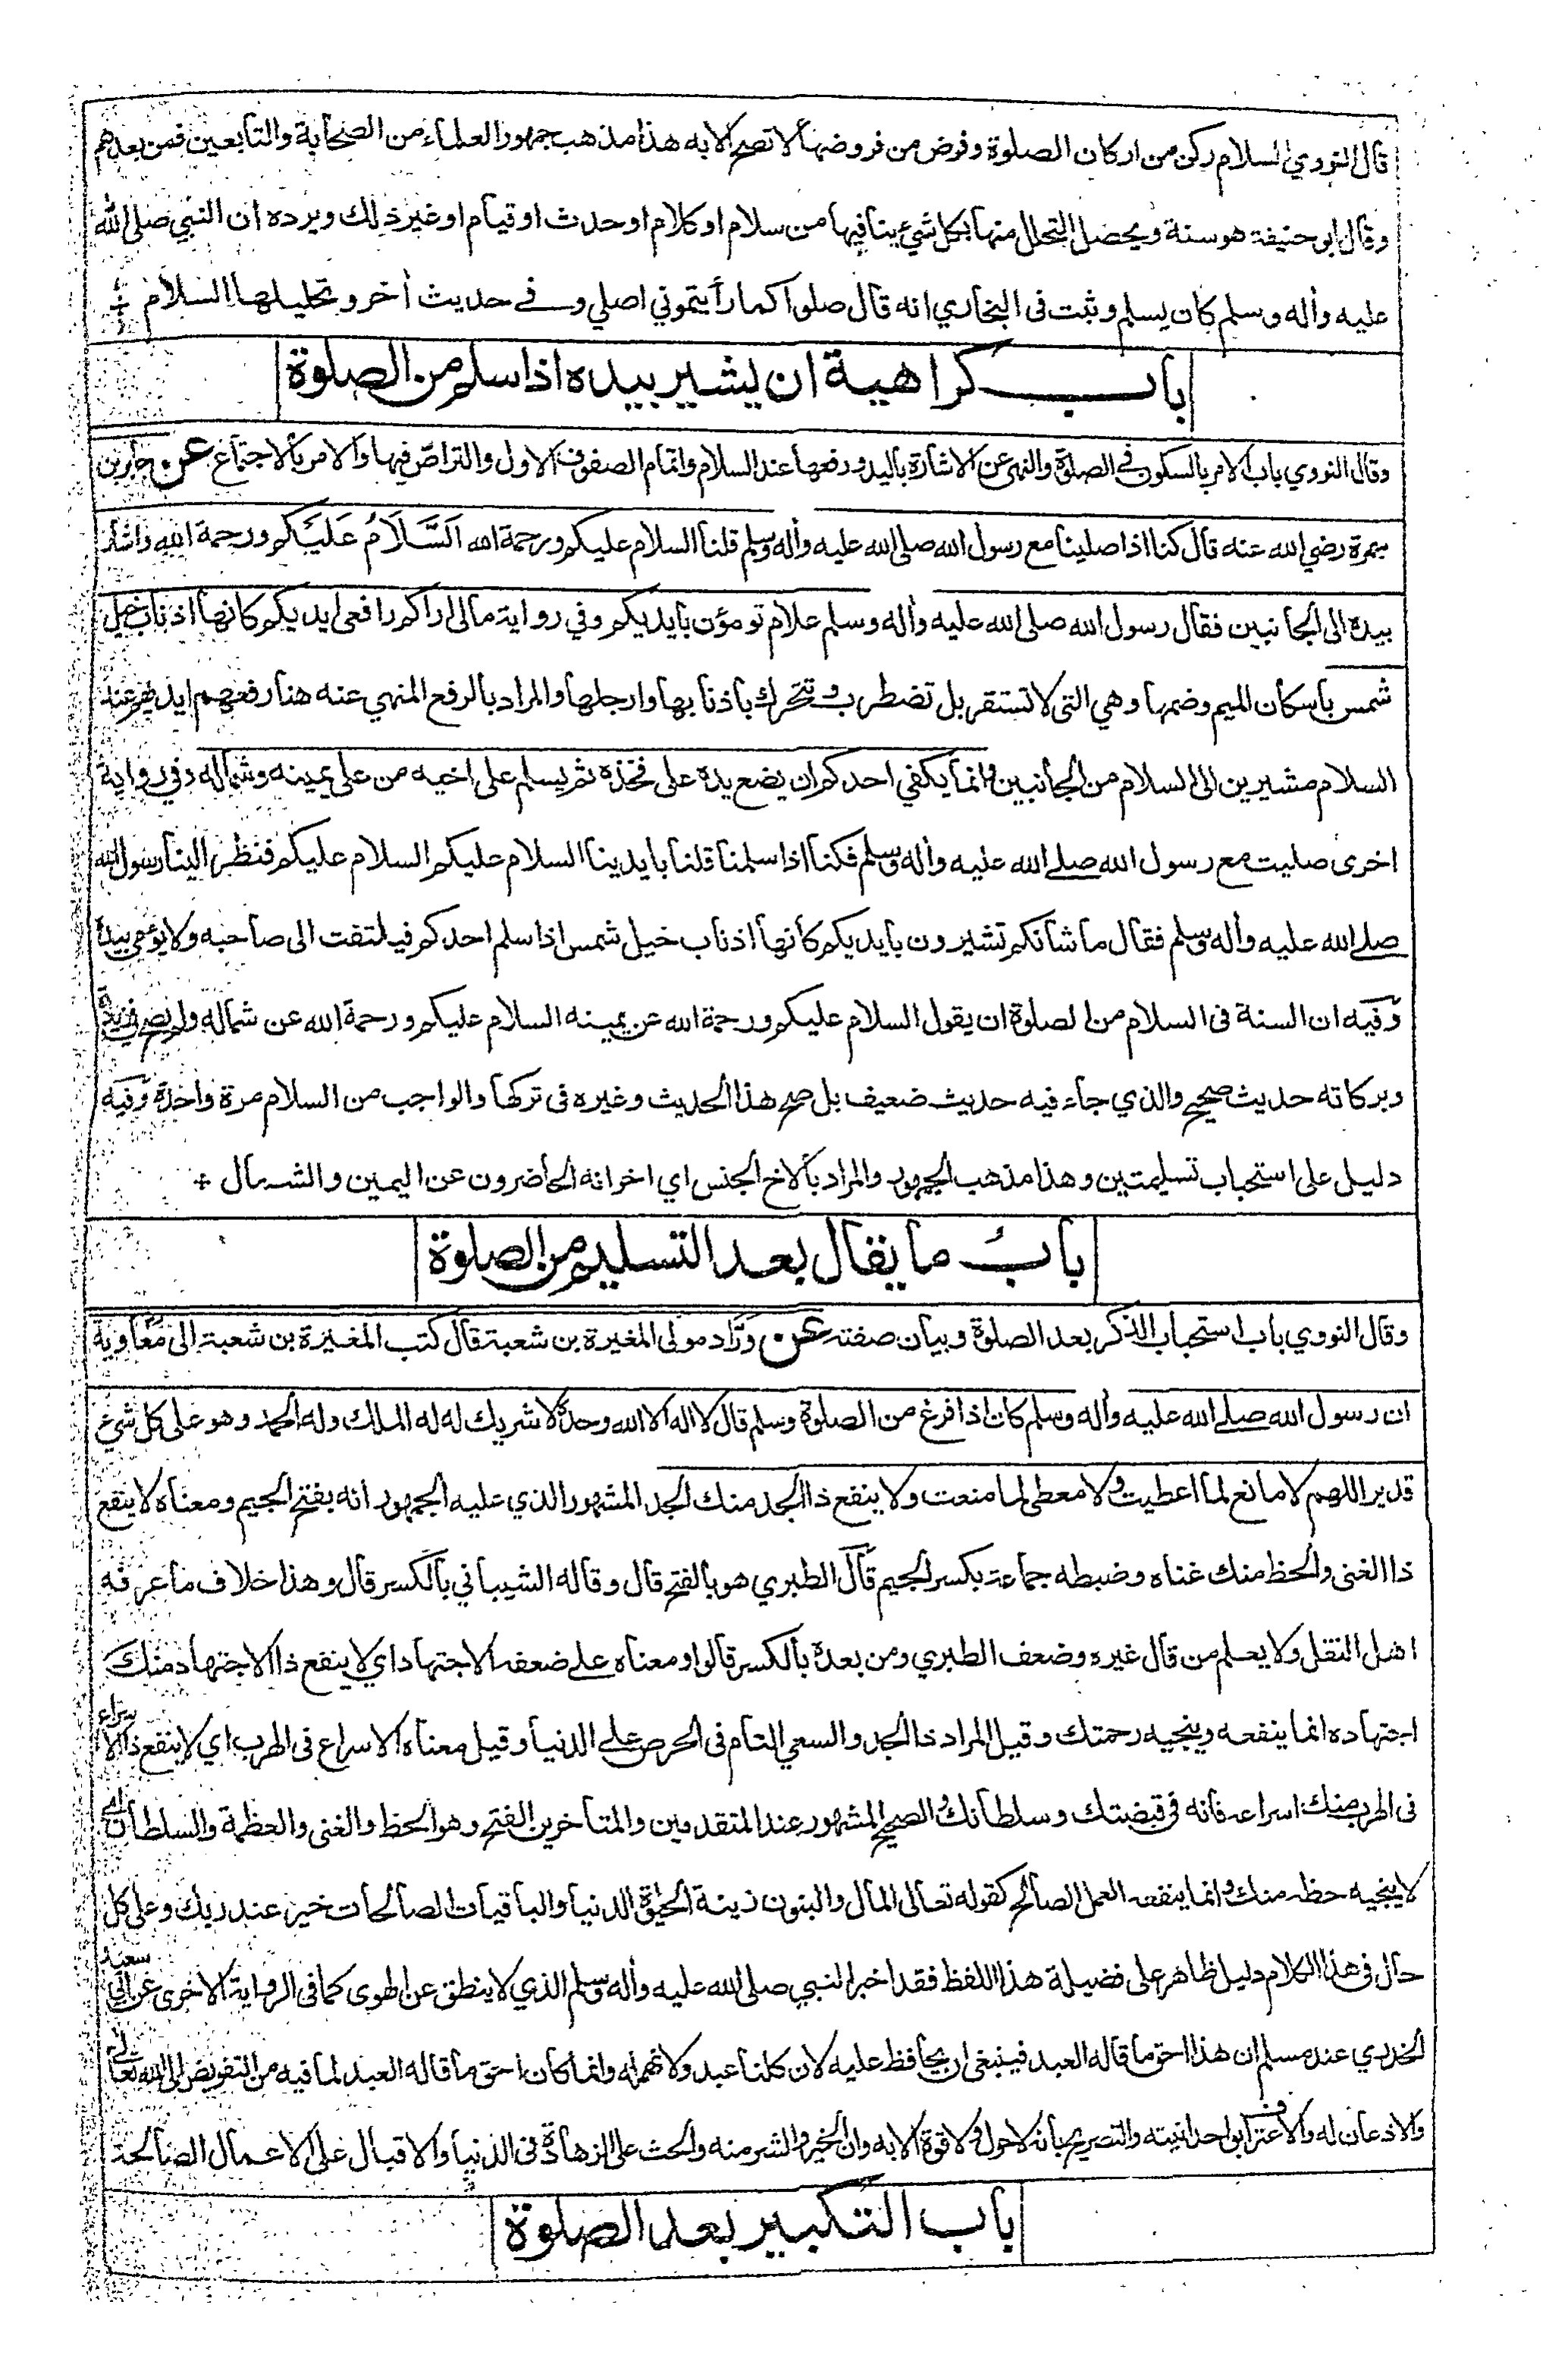 قال النووي السلام ركن من اركان الصلوة وفرض من فروضها لا تصح الا به هذا مذهب جمهور العلماء من الصحابة والتابعين فمن بعدهم
وقال ابو حنيفة هو سنة ويحصل التحلل منها بكل شيئ ينافيها من سلام او كلام او حدث او قيام او غير ذلك ويرده ان النبي صلى الله
عليه وأله وسلم كان يسلم وثبت فى البخاري انه قال صلوا كما رأيتموني اصلي وفے حديث أخر وتحليلها السلام ÷
باب كراهية ان يشير بيده اذا سلم من الصلوة
وقال النووي باب الامر بالسكون في الصلوة والنهى عن الاشارة باليد ورفعها عند السلام واتمام الصفوف الاول والتراصّ فيها والامر بالاجتماع عن جابر بن
سمرة رضي الله عنه قال كنا اذا صلينا مع رسول الله صلى الله عليه وأله وسلم قلنا السلام عليكم ورحمة الله اَلسَّلَامُ عَلَيْكُم ورحمة الله واشار
بيده الى الجانبين فقال رسول الله صلى الله عليه وأله وسلم علام تومؤن بايديكم وفي رواية مالى اراكم رافعى ايديكم كانها اذناب خيل
شمس باسكان الميم وضمها وهي التى لا تستقر بل تضطرب وتتحرك باذنابها وارجلها والمراد بالرفع المنهي عنه هنا رفعهم ايديهم عند
السلام مشيرين الى السلام من الجانبين وانما يكفي احدكم ان يضع يده على فخذه ثم يسلم على اخيه من على يمينه وشماله وفي رواية
اخرى صليت مع رسول الله صلے الله عليه وأله وسلم فكنا اذا سلمنا قلنا بايدينا السلام عليكم السلام عليكم فنظر الينا رسول الله
صلے الله عليه وأله وسلم فقال ما شأنكم تشيرون بايديكم كأنها اذناب خيل شمس اذا سلم احدكم فيلتفت الى صاحبه ولا يؤمي بيده
وفيه ان السنة فى السلام من الصلوة ان يقول السلام عليكم ورحمة الله عن يمينه السلام عليكم ورحمة الله عن شماله ولم يصح في زيادة
وبركاته حديث صحيح والذي جاء فيه حديث ضعيف بل صح هذا الحديث وغيره فى تركها والواجب من السلام مرة واحدة وفيه
دليل على استحباب تسليمتين وهذا مذهب الجمهور والمراد بالاخ الجنس اي اخوانه الحاضرون عن اليمين والشمال ÷
بابُ ما يقال بعد التسليم من الصلوة
وقال النووي باب استحباب الذكر بعد الصلوة وبيان صفته عن ورّاد مولى المغيرة بن شعبة قال كتب المغيرة بن شعبة الى معاوية
ان رسول الله صلے الله عليه وأله وسلم كان اذا فرغ من الصلوة وسلم قال لا اله الا الله وحده لا شريك له له الملك وله الحمد وهو على كل شيئ
قدير اللهم لا مانع لما اعطيت ولا معطى لما منعت ولا ينفع ذا الجد منك الجد المشهور الذي عليه الجمهور انه بفتح الجيم ومعناه لا ينفع
ذا الغنى والحظ منك غناه وضبطه جماعة بكسر الجيم قال الطبري هو بالفتح قال وقاله الشيباني بالكسر قال وهذا خلاف ما عرفه
اهل النقل ولا يعلم من قال غيره وضعف الطبري ومن بعده بالكسر قالوا ومعناه علے ضعفه الاجتهاد اي لا ينفع ذا الاجتهاد منك
اجتهاده انما ينفعه وينجيه رحمتك وقيل المراد ذا الجد والسعي التام فى الحرص علے الدنيا وقيل معناه الاسراع فى الهرب اي لا ينفع ذا الاسراع
فى الهرب منك اسراعه فانه في قبضتك وسلطانك والصحيح المشهور عند المتقدمين والمتأخرين الفتح وهو الحظ والغنى والعظمة والسلطان اى
لا ينجيه حظه منك وانما ينفعه العمل الصالح كقوله تعالى المال والبنون زينة الحيوة الدنيا والباقيات الصالحات خير عند ربك وعلى كل
حال فى هذا الكلام دليل ظاهر على فضيلة هذا اللفظ فقد اخبر النبي صلى الله عليه وأله وسلم الذي لا ينطق عن الهوى كما فى الرواية الاخرى عن ابي سعيد
الخدري عند مسلم ان هذا احق ما قاله العبد فينبغى ان يحافظ عليه لان كلنا عبد ولا نهمله وانما كان احق ما قاله العبد لما فيه من التفويض الى الله تعالى
والاذعان له والاعتراف بواحدانيته والتصريح بانه لا حول ولا قوة الا به وان الخير والشر منه والحث على الزهادة فى الدنيا والاقبال على الاعمال الصالحة
باب التكبير بعد الصلوة